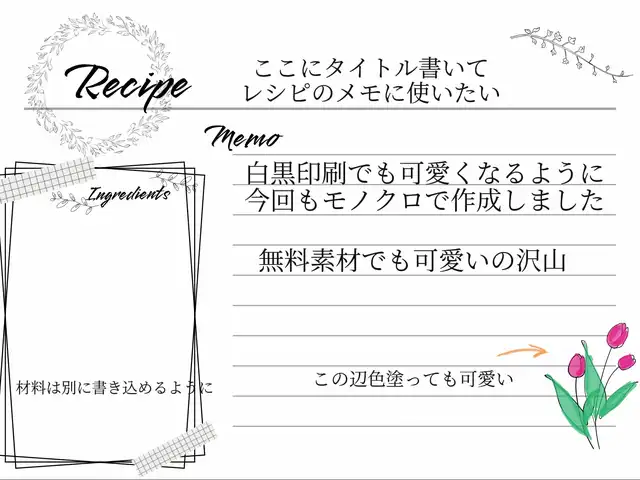 Recipe
ここにタイトル書いて
レシピのメモに使いたい
Memo
白黒印刷でも可愛くなるように
今回もモノクロで作成しました
Ingredients
無料素材でも可愛いの沢山
この辺色塗っても可愛い
材料は別に書き込めるように